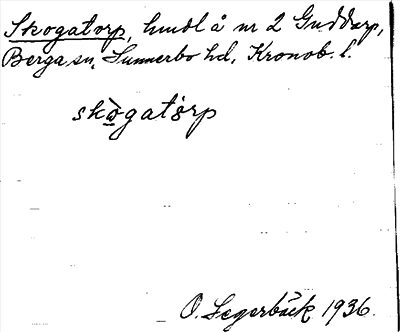 Skogatorp, hmdl å nr 2 Guddarp,
Berga sn, Sunnerbo hd, Kronob. l.
skògatårp
O. Segerbäck 1936.